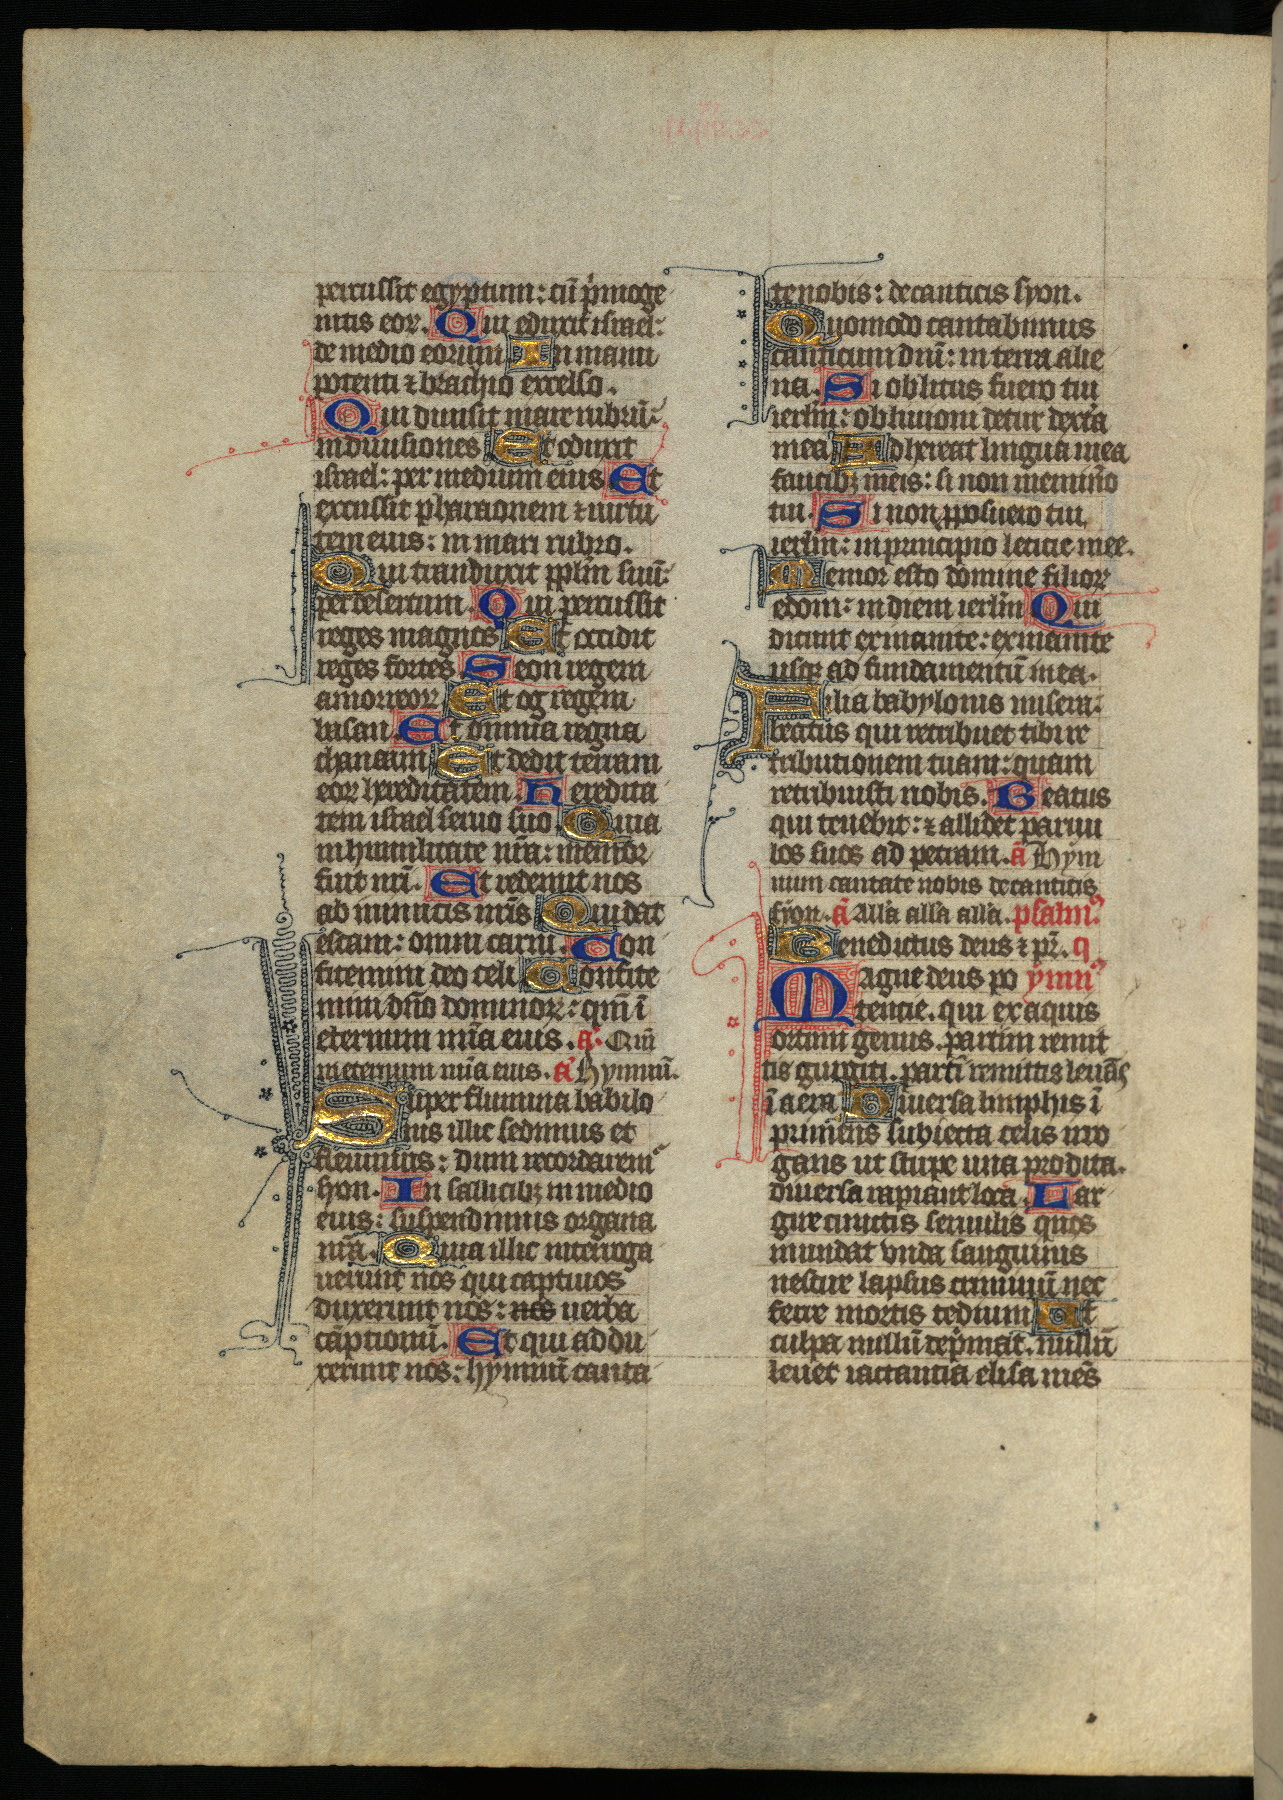 percussit egyptum: cū p̄moge
nitis eoꝝ. Qui eduxit israel:
de medio eorum. In manu
potenti ⁊ brachio excelso.
Qui diuisit mare rubrū:
in diuisiones Et eduxit
israel: per medium eius Et
excussit pharaonem ⁊ uirtu
tem eius: in mari rubro.
Qui tranduxit pplm̄ suū:
per desertum. Qui percussit
reges magnos Et occidit
reges fortes Seon regem
amorreoꝝ Et og regem
basan Et omnia regna
chanaam Et dedit terram
eoꝝ hereditatem. Heredita
tem israel seruo suo Quia
in humilitate nr̄a: memor
fuit nr̄i. Et redemit nos
ab inimicis nr̄is Qui dat
escam: omni carni. Con
fitemini deo celi Confite
mini dn̄o dominoꝝ: qm̄ ī
eternum mīa eius. a᷑. Qm̄
in eternum mīa eius. a᷑ Hymnū.
Super flumina babilo
nis illic sedimus et
fleuimus: dum recordarem᷑
syon. In salicibꝫ in medio
eius: suspendimus organa
nr̄a. Quia illic interroga
uerunt nos qui captiuos
duxerunt nos: nos uerba
captionū. Et qui addu
xerunt nos: hymnū canta
te nobis: de canticis syon.
Quomodo cantabimus
canticum dn̄i: in terra alie
na. Si oblitus fuero tui
ierlm̄: obliuioni detur dext̄a
mea Adhereat lingua mea
faucibꝫ meis: si non memin̄o
tui. Si non ꝓposuero tui
ierlm̄: in principio leticie mee.
Memor esto domine filioꝝ
edom: in diem ierlm̄ Qui
dicunt exinanite: exinanite
usqꝫ ad fundamentū in ea.
Filia babylonis misera:
beatus qui retribuet tibi re
tributionem tuam: quam
retribuisti nobis. Beatus
qui tenebit: ⁊ allidet paruu
los suos ad petram. a᷑ Hym
num cantate nobis de canticis
syon. a᷑ all̄a all̄a all̄a. psalm᷒.
Benedictus deus ⁊ pr̄. q
Magne deus po ymn᷒
tencie. qui ex aquis
ortum genus. partim remit
tis gurgiti. partī remittis leuās
ī aera Diuersa limphis ī
primens subiecta celis irro
gans ut stirpe una prodita.
diuersa rapiant loca. Lar
gire cunctis seruulis quos
mundat vnda sanguinis
nescire lapsus criminū nec
ferre mortis tedium Ut
culpa nullū dep̄mat. nullū
leuet iactantia elisa mēs